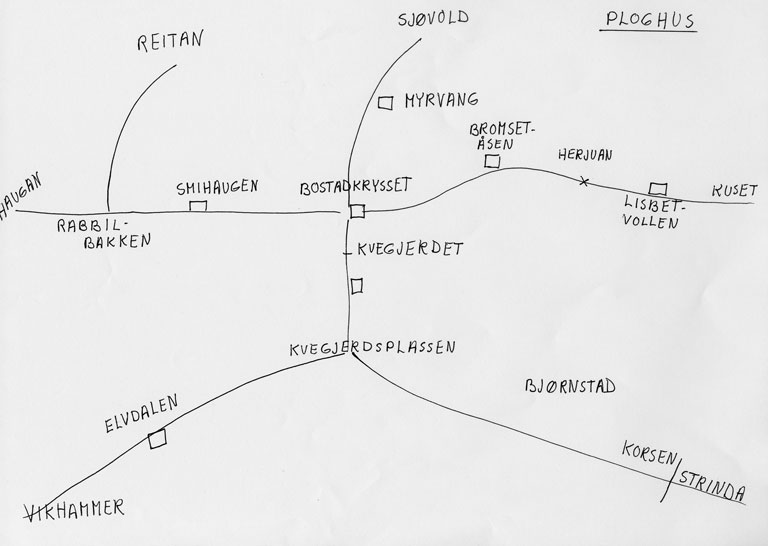 SJØVOLD
PLOGHUS
REITAN
MYRVANG
BROMSET-
ÅSEN
HERJUAN
HAUGAN
SMIHAUGEN
BOSTADKRYSSET
KUSET
LISBET-
VOLLEN
RABBIL-
BAKKEN
KVEGJERDET
KVEGJERDSPLASSEN
BJØRNSTAD
ELVDALEN
KORSEN
STRINDA
VIKHAMMER